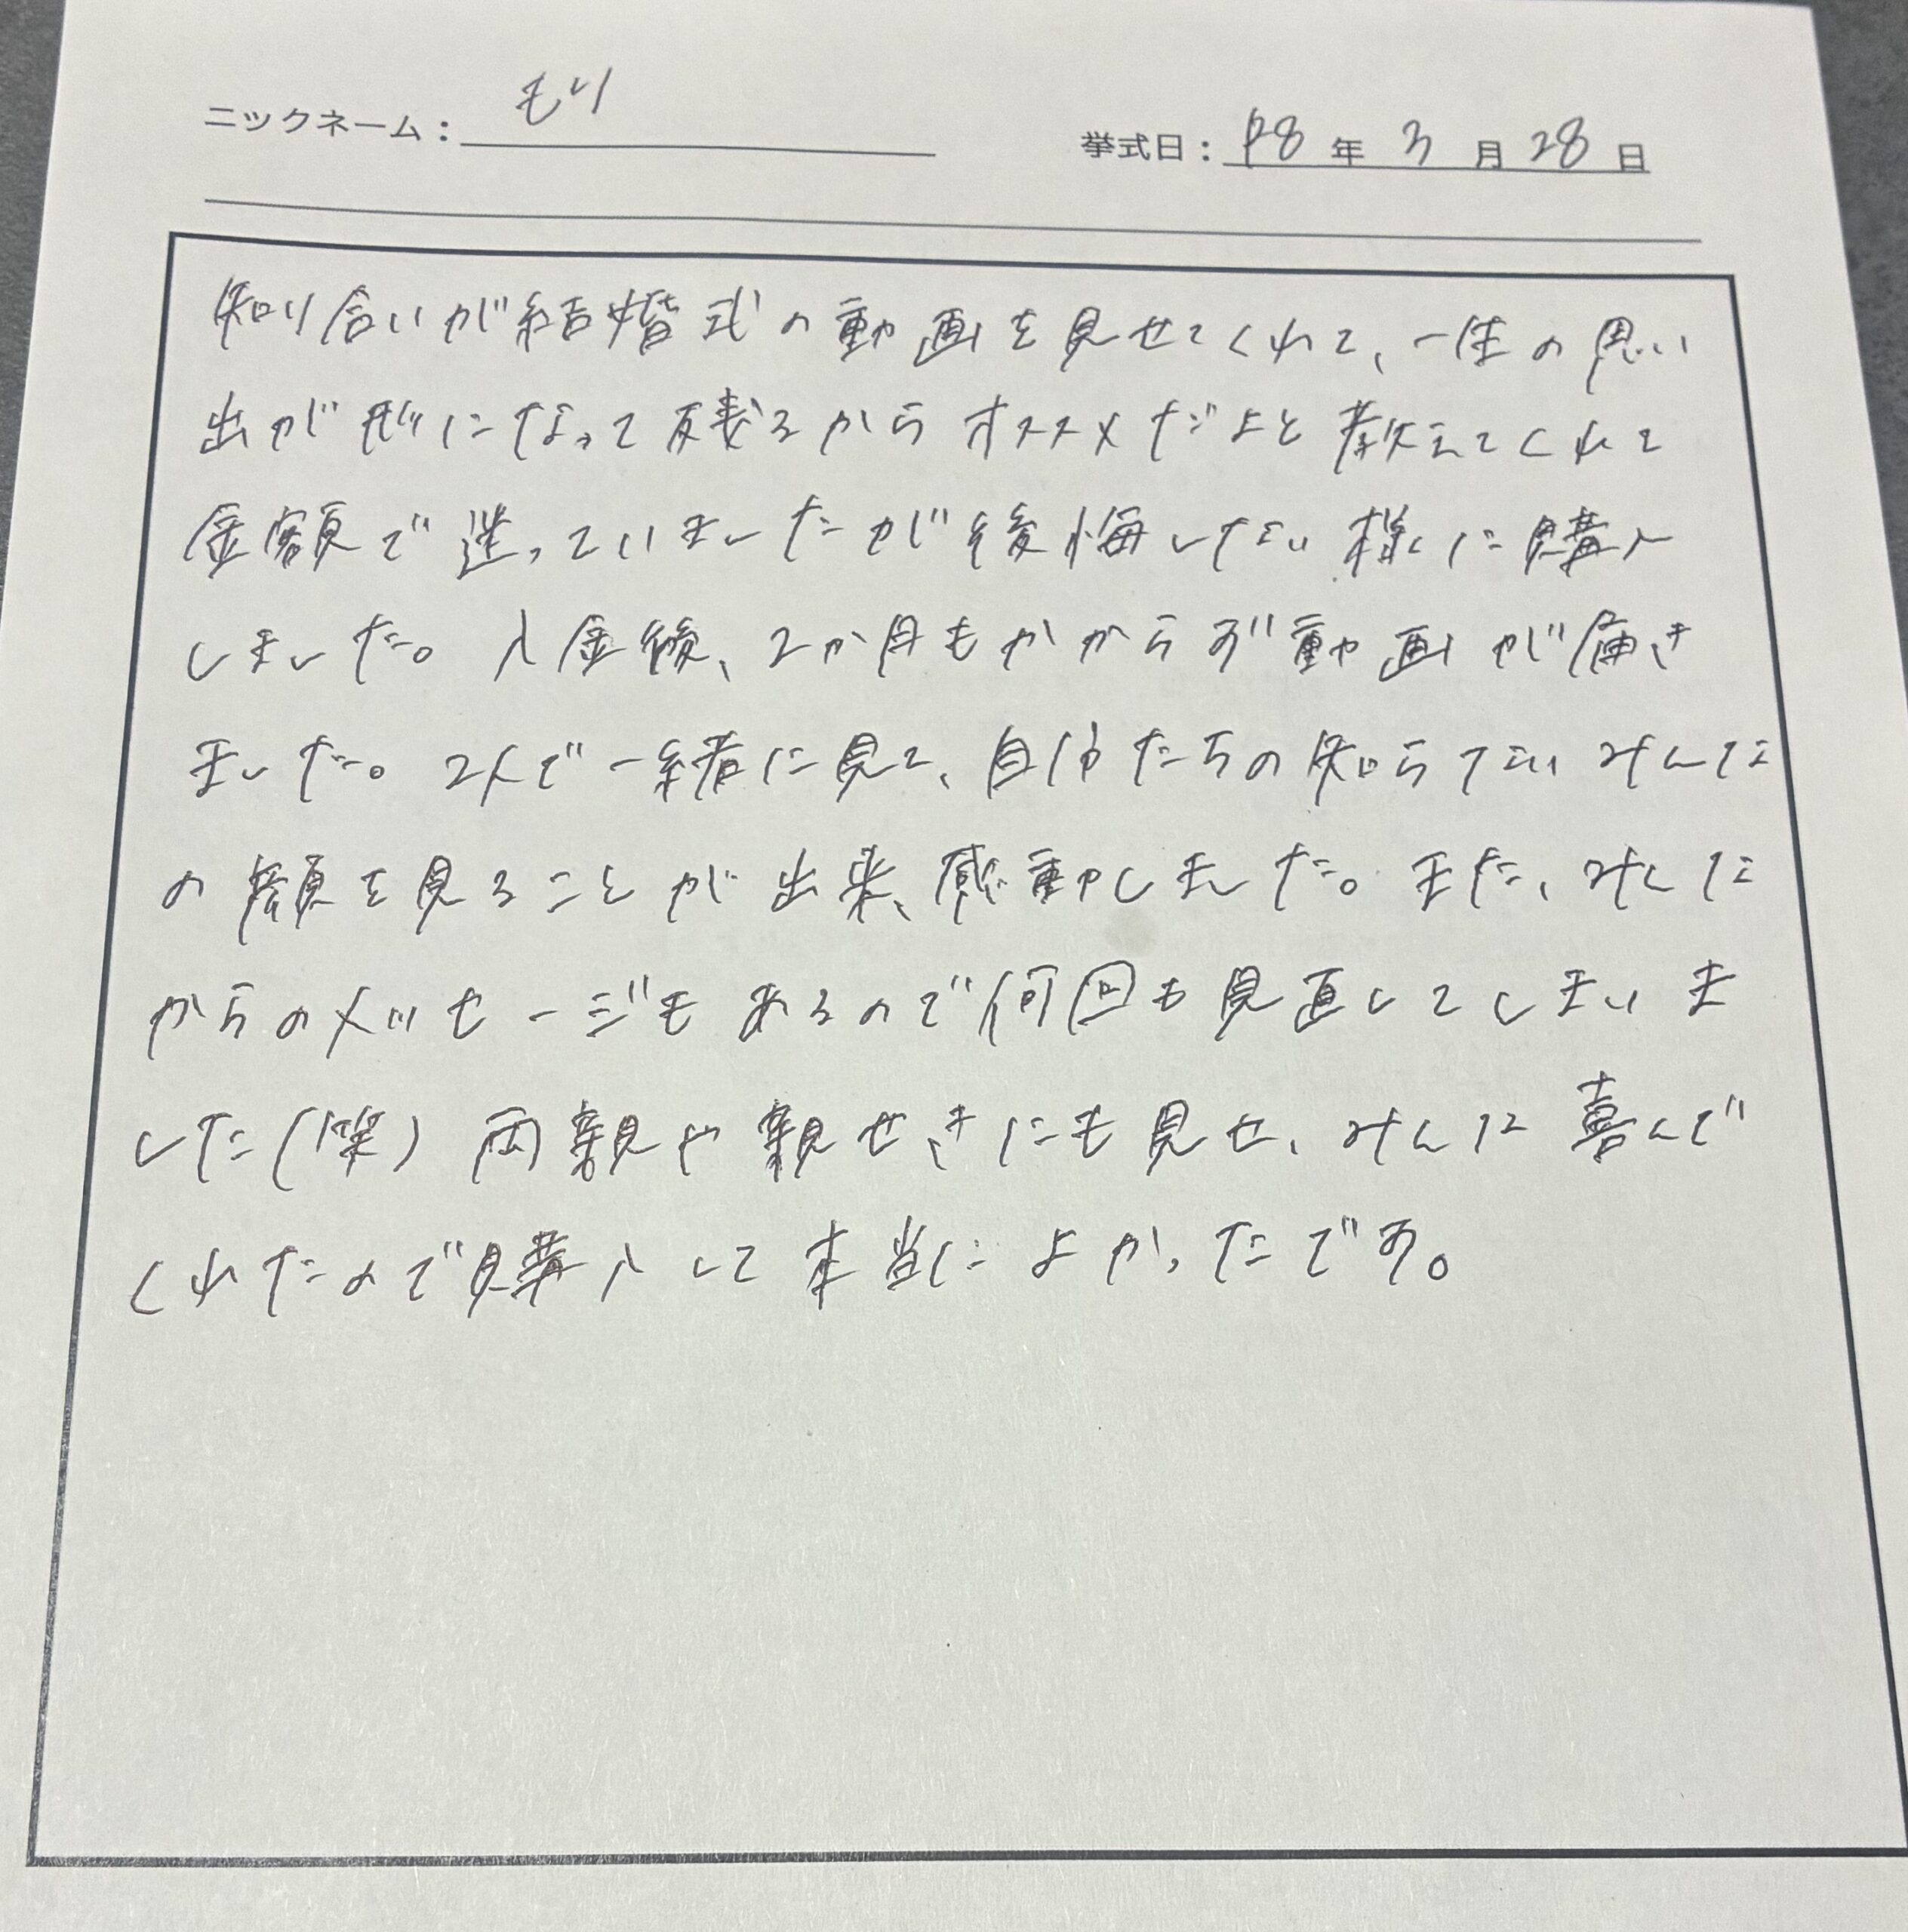 ニックネーム：もり
挙式日：R8年3月28日
知り合いが結婚式の動画を見せてくれて、一生の思い
出が形になって残るからオススメだよと教えてくれて
金額で迷っていましたが後悔しない様に購入
しました。入金後、2か月もかからず動画が届き
ました。2人で一緒に見て、自分たちの知らないみんな
の顔を見ることが出来、感動しました。また、みんな
からのメッセージもあるので何回も見直してしまいま
した(笑)両親や親せきにも見せ、みんな喜んで
くれたので購入して本当によかったです。